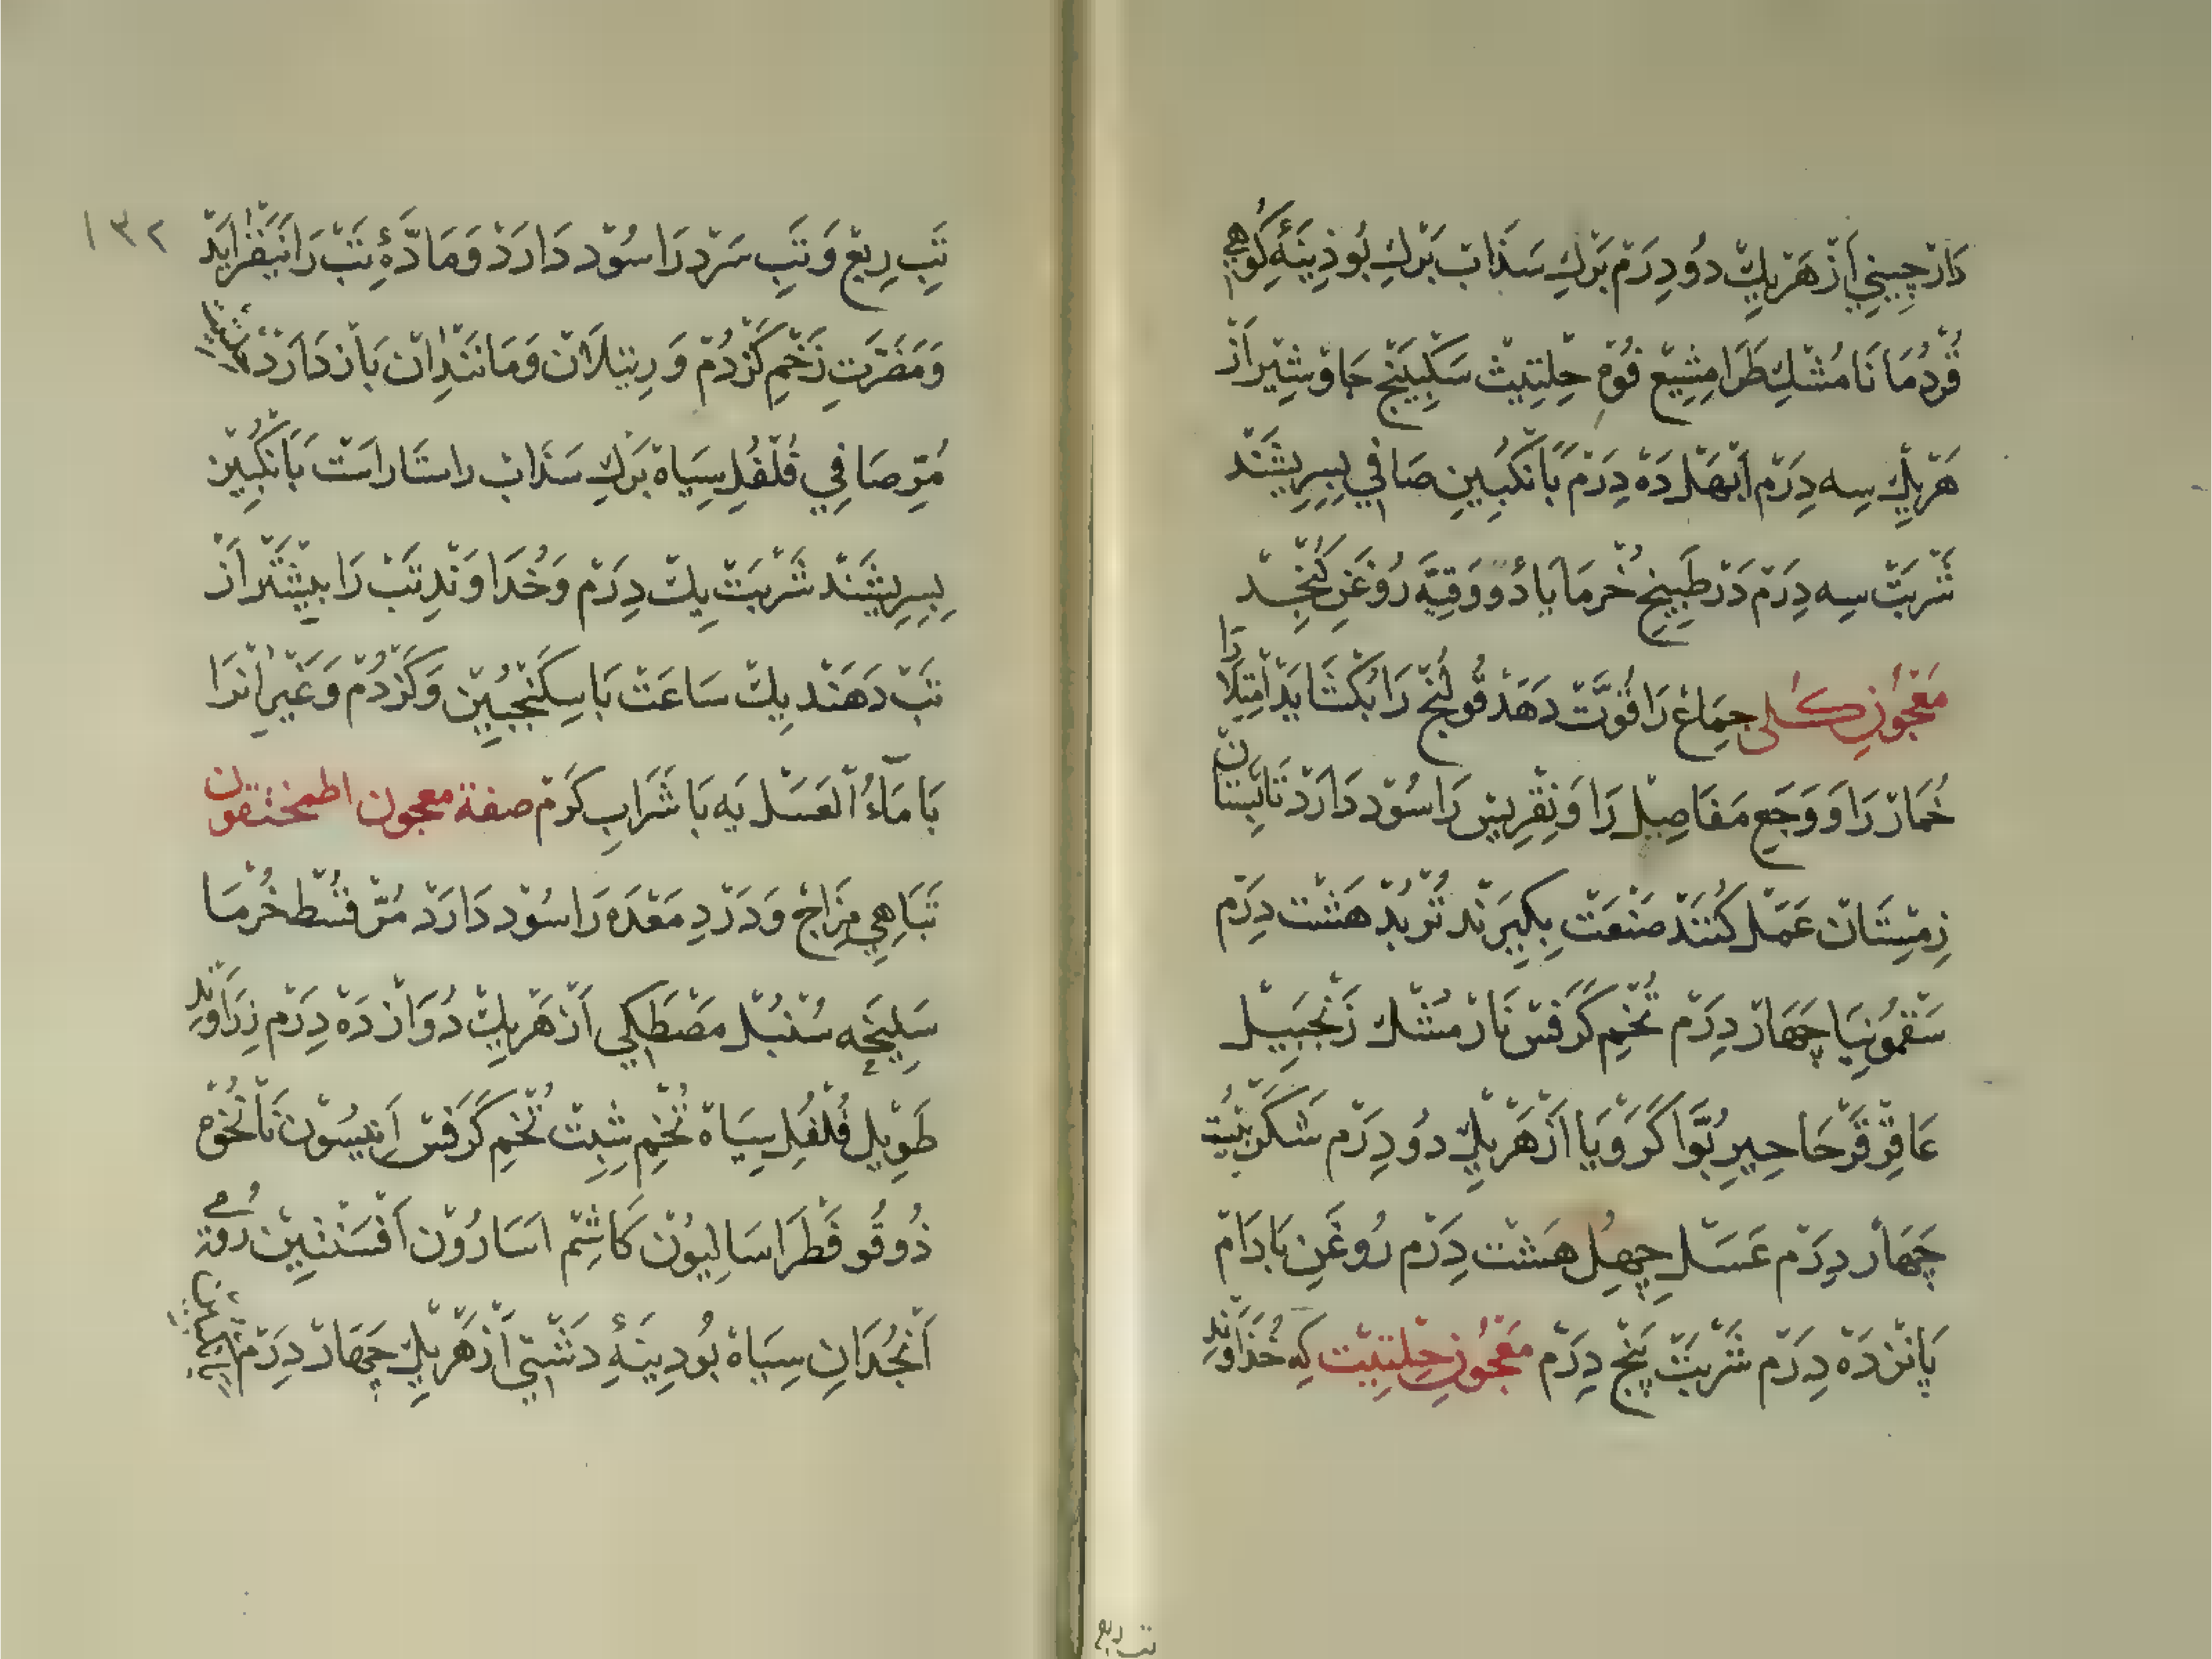 دَارْچِينِي اَزْ هَرْيكِ دُودِرَمْ بَرْكِ سَذَابْ بَرْكِ بُوذِينَهٔ كُوهِي
قُرْدُمَانَا مُشْكِطَرَامِشِيعْ فُوَهْ حِلْتِيتْ سَكْبِينَجْ جَاوْشِيْر اَزْ
هَرْيكِ سِه دِرَمْ اَبْهَلْ دَهْ دِرَمْ بَاَنْكَبِينِ صَافِي بِسِرِيشَنْد
شَرْبَتْ سِه دِرَمْ دَرْ طَبِيخِ خُرْمَا يَا دُو وَقِيَّه رُوْغَنِ كُنْجِدْ
مَعْجُونِ كَلْكَلي جِمَاعْ رَا قُوَّتْ دَهَدْ قُولَنْجْ رَا بُكْشَايَدْ اِمْتِلَا رَا
خُمَارْ رَا وَ وَجَعِ مَفَاصِلْ رَا وَ نِقْرِيسْ رَا سُوْد دَارَدْ تَابِسْتَانْ
زِمْسِتَانْ عَمَلْ كُنَنَدْ صَنْعَتْ بِكِيرَنْد تُرْبُدْ هَشْت دِرَمْ
سَقْمُونِيَا چَهَارْ دِرَمْ تُخْمِ كَرَفْسْ نَارْمُشْك زَنْجَبِيْل
عَاقِرْقَرْحَا حِيرِبُوَّا كَرَوْيَا اَزْ هَرْيكِ دُو دِرَمْ شَكَرْ بِيسْت
چَهَارْ دِرَمْ عَسَلْ چِهِلْ هَشْت دِرَمْ رُوغَنِ بَادَامْ
پَانْزَدَهْ دِرَمْ شَرْبَتْ پَنْج دِرَمْ مَعْجُونِ حِلْتِيتْ كِه خُذَاوَنْدِ
تب ربع
١٣٢
تَبِ رِبعْ وَ تَبِ سَرْد رَا سُوْد دَارَدْ وَ مَادَّهٔ تَبْ رَا نَيَفْزَايَدْ
وَ مَضَرَّتِ زَخْمِ كَژْدُمْ وَ رِتيلَانْ وَ مَانَنْدِ اٰن بَاز دَارَدْ
مُرّ صَافِي فُلْفُلِ سِيَاهْ بَرْكِ سَذَابْ راستَاراسَتْ بَاَنْكَبِيْن
بِسِرِيشَنْد شَرْبَتْ يكْ دِرَمْ وَ خُدَاوَنْدِ تَبْ رَا بيشْتَرْ اَزْ
تَبْ دَهَنْد يِكْ سَاعَتْ بَاسِكَنْجُبِيْن وَ كَژْدُمْ وَ غَيْرِ اٰنْرَا
بَا مَاءُ الْعَسَل يَه بَا شَرَابِ كَرَمْ صفة معجون اطمخثقون
تَبَاهِي مِزَاجْ وَ دَرْدِ مَعْدَه رَا سُوْد دَارَدْ مُرّ قُسْط خُرْمَا
سَلِيخَه سُنْبُلْ مَصْطَكِي اَزْ هَرْيكِ دُوَازْدَهْ دِرَمْ زِرَاوَنْدِ
طَوِيلْ فُلْفُلِ سِيَاهْ تُخْمِ شِبِتْ تُخْمِ كَرَفْس اَنِيسُوْن نَانُخْوَه
ذُوقُو فَطْرَاسَالِيُوْن كَاشِمْ اَسَارُوْن اَفْسَنْتِيْن رُومي
اَنْجُدَانِ سِيَاهْ بُودِينَهٔ دَشْتِي اَزْ هَرْيكِ چَهَارْ دِرَمْ